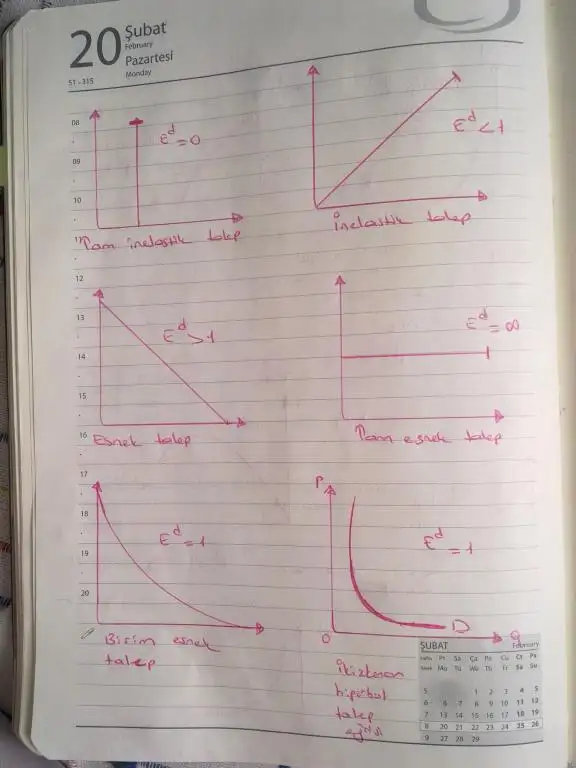 20
Şubat
February
Pazartesi
Monday
51 - 315
08
09
10
11
12
13
14
15
16
17
18
19
20
E^d = 0
Tam inelastik talep
E^d < 1
İnelastik talep
E^d > 1
Esnek talep
E^d = ∞
Tam esnek talep
E^d = 1
Birim esnek
talep
P
E^d = 1
D
0
q
İkizkenar
hiperbol
talep
eğrisi
ŞUBAT February
Hafta Pt Sa Ça Pe Cu Ct Pa
Week Mo Tu We Th Fr Sa Su
5 1 2 3 4 5
6 6 7 8 9 10 11 12
7 13 14 15 16 17 18 19
8 20 21 22 23 24 25 26
9 27 28 29